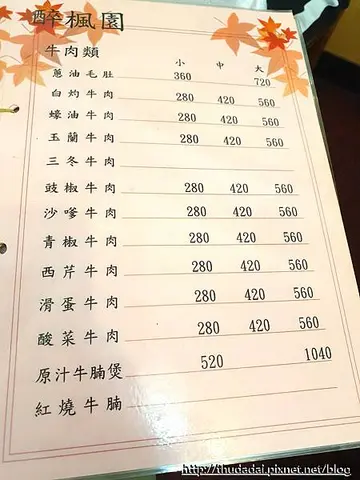 醉楓園
牛肉類 小 中 大
蔥油毛肚 360 720
白灼牛肉 280 420 560
蠔油牛肉 280 420 560
玉蘭牛肉 280 420 560
三冬牛肉
豉椒牛肉 280 420 560
沙嗲牛肉 280 420 560
青椒牛肉 280 420 560
西芹牛肉 280 420 560
滑蛋牛肉 280 420 560
酸菜牛肉 280 420 560
原汁牛腩煲 520 1040
紅燒牛腩
http://thudadai.pixnet.net/blog